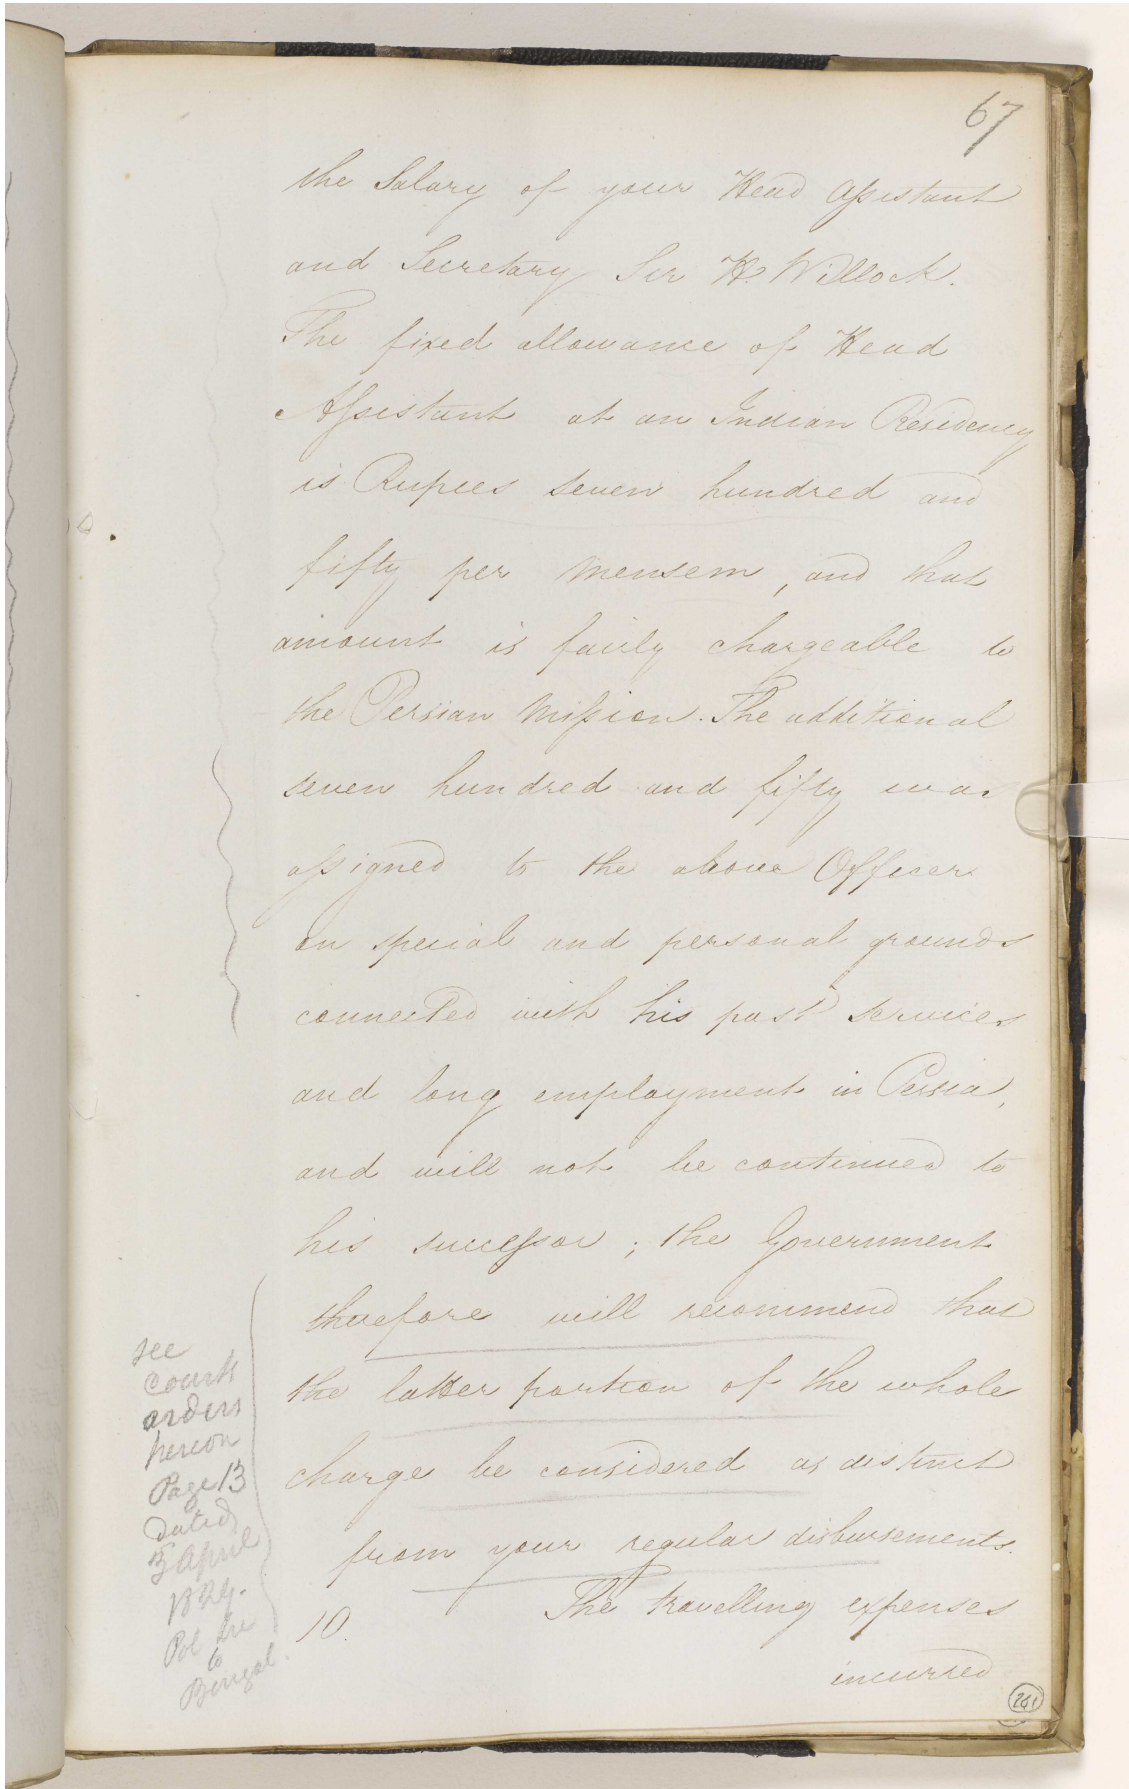 67
the Salary of your Head Assistant
and Secretary Sir H. Willock.
The fixed allowance of Head
Assistant at an Indian Residency
is Rupees seven hundred and
fifty per mensem, and that
amount is fairly chargeable to
the Persian Mission. The additional
seven hundred and fifty was
assigned to the above Officer
on special and personal grounds
connected with his past services
and long employment in Persia,
and will not be continued to
his successor; the Government
therefore will recommend that
the latter portion of the whole
charge be considered as distinct
from your regular disbursements.
10. The travelling expenses
incurred
see
Courts
orders
hereon
Page 13
dated
April
1829.
Pol
to
Bengal.
261